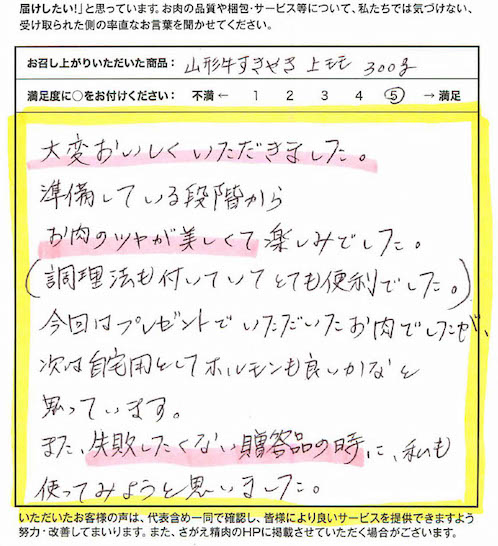 届けしたい!」と思っています。お肉の品質や梱包・サービス等について、私たちでは気づけない、
受け取られた側の率直なお言葉を聞かせてください。
お召し上がりいただいた商品: 山形牛すきやき 上モモ 300g
満足度に○をお付けください: 不満 ← 1 2 3 4 5 → 満足
大変おいしくいただきました。
準備している段階から
お肉のツヤが美しくて楽しみでした。
(調理法も付いていてとても便利でした。)
今回はプレゼントでいただいたお肉でしたが、
次は自宅用としてホルモンも良いかなと
思っています。
また、失敗したくない贈答品の時に、私も
使ってみようと思いました。
いただいたお客様の声は、代表含め一同で確認し、皆様により良いサービスを提供できますよう
努力・改善してまいります。また、さがえ精肉のHPに掲載させていただく場合がございます。